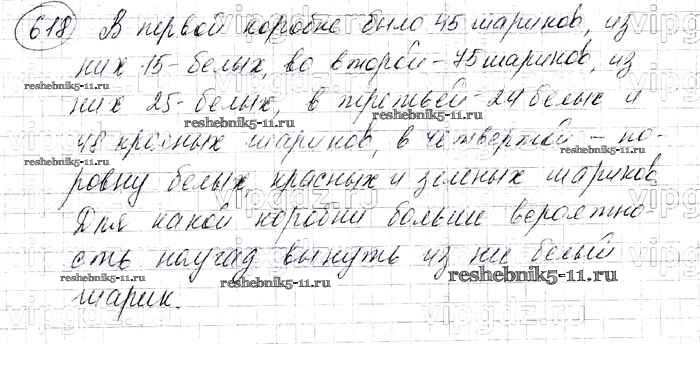 618 В первой коробке было 45 шариков, из
них 15 - белых, во второй - 75 шариков, из
reshebnik5-11.ru
reshebnik5-11.ru
них 25 - белых, в третьей - 24 белых и
reshebnik5-11.ru
reshebnik5-11.ru
48 красных шариков, в четвертой - по-
reshebnik5-11.ru
reshebnik5-11.ru
ровну белых, красных и зеленых шариков
Для какой коробки больше вероятно-
сть наугад вынуть из неё белый
reshebnik5-11.ru
reshebnik5-11.ru
reshebnik5-11.ru
шарик.